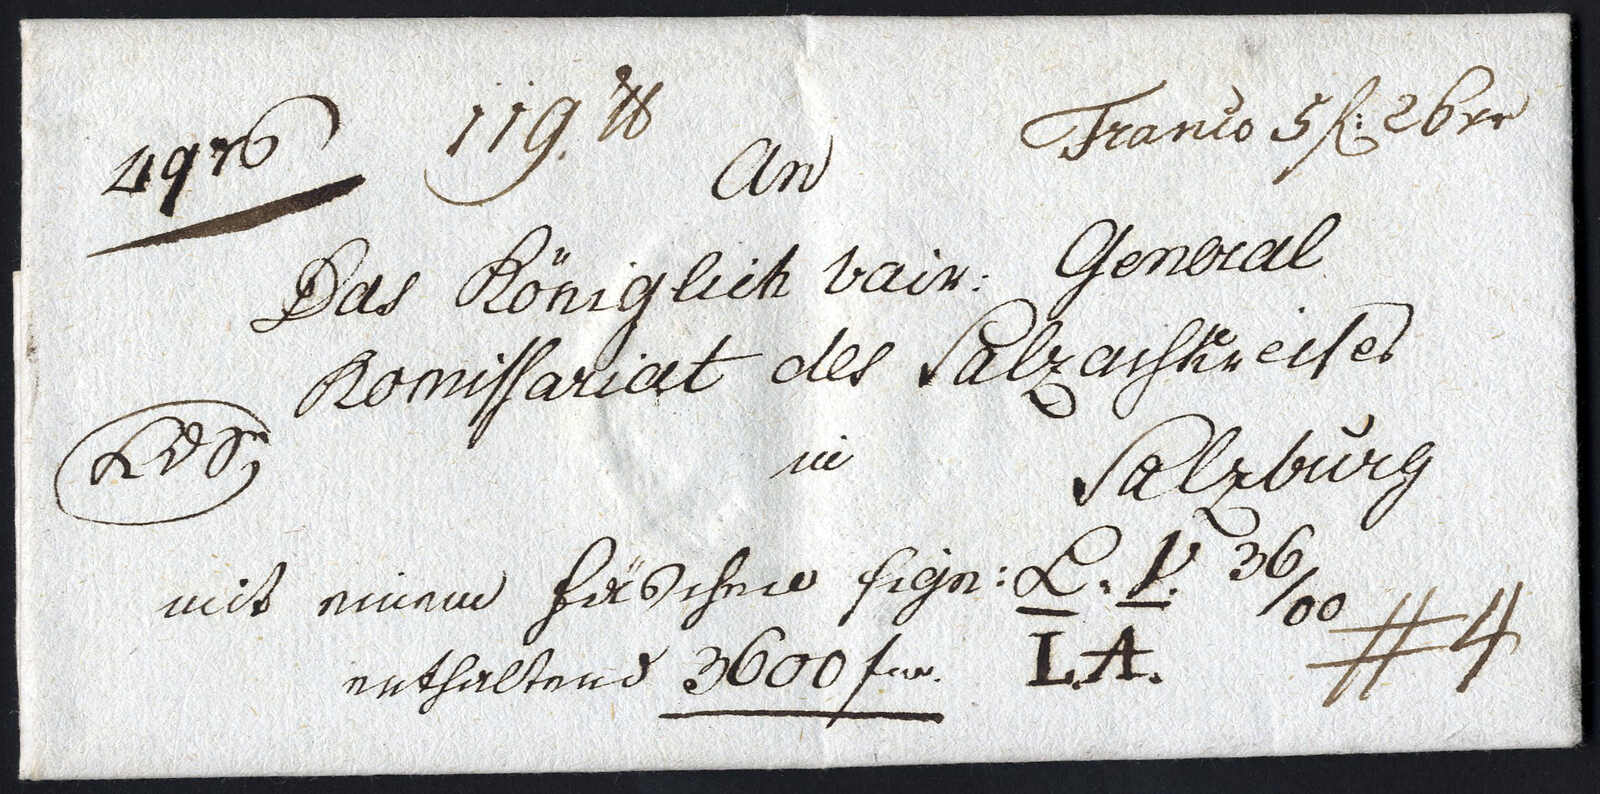 119. ℔
Franco 5 f: 26 xr
An
Das Königlich bair: General
Komissariat des Salzachkreises
in
Salzburg
mit einem Fäßchen sign: L. P. 36/00
enthaltend 3600 frs.
L.A.
#4